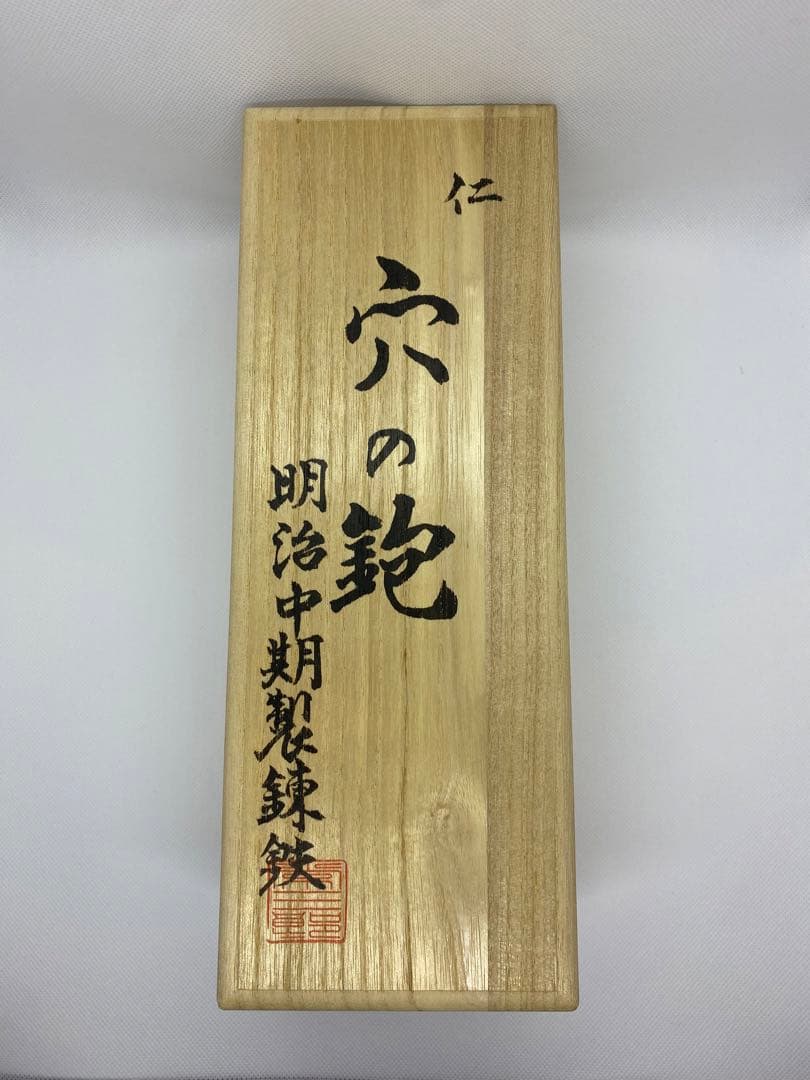 仁
穴の鉋
明治中期製錬鉄